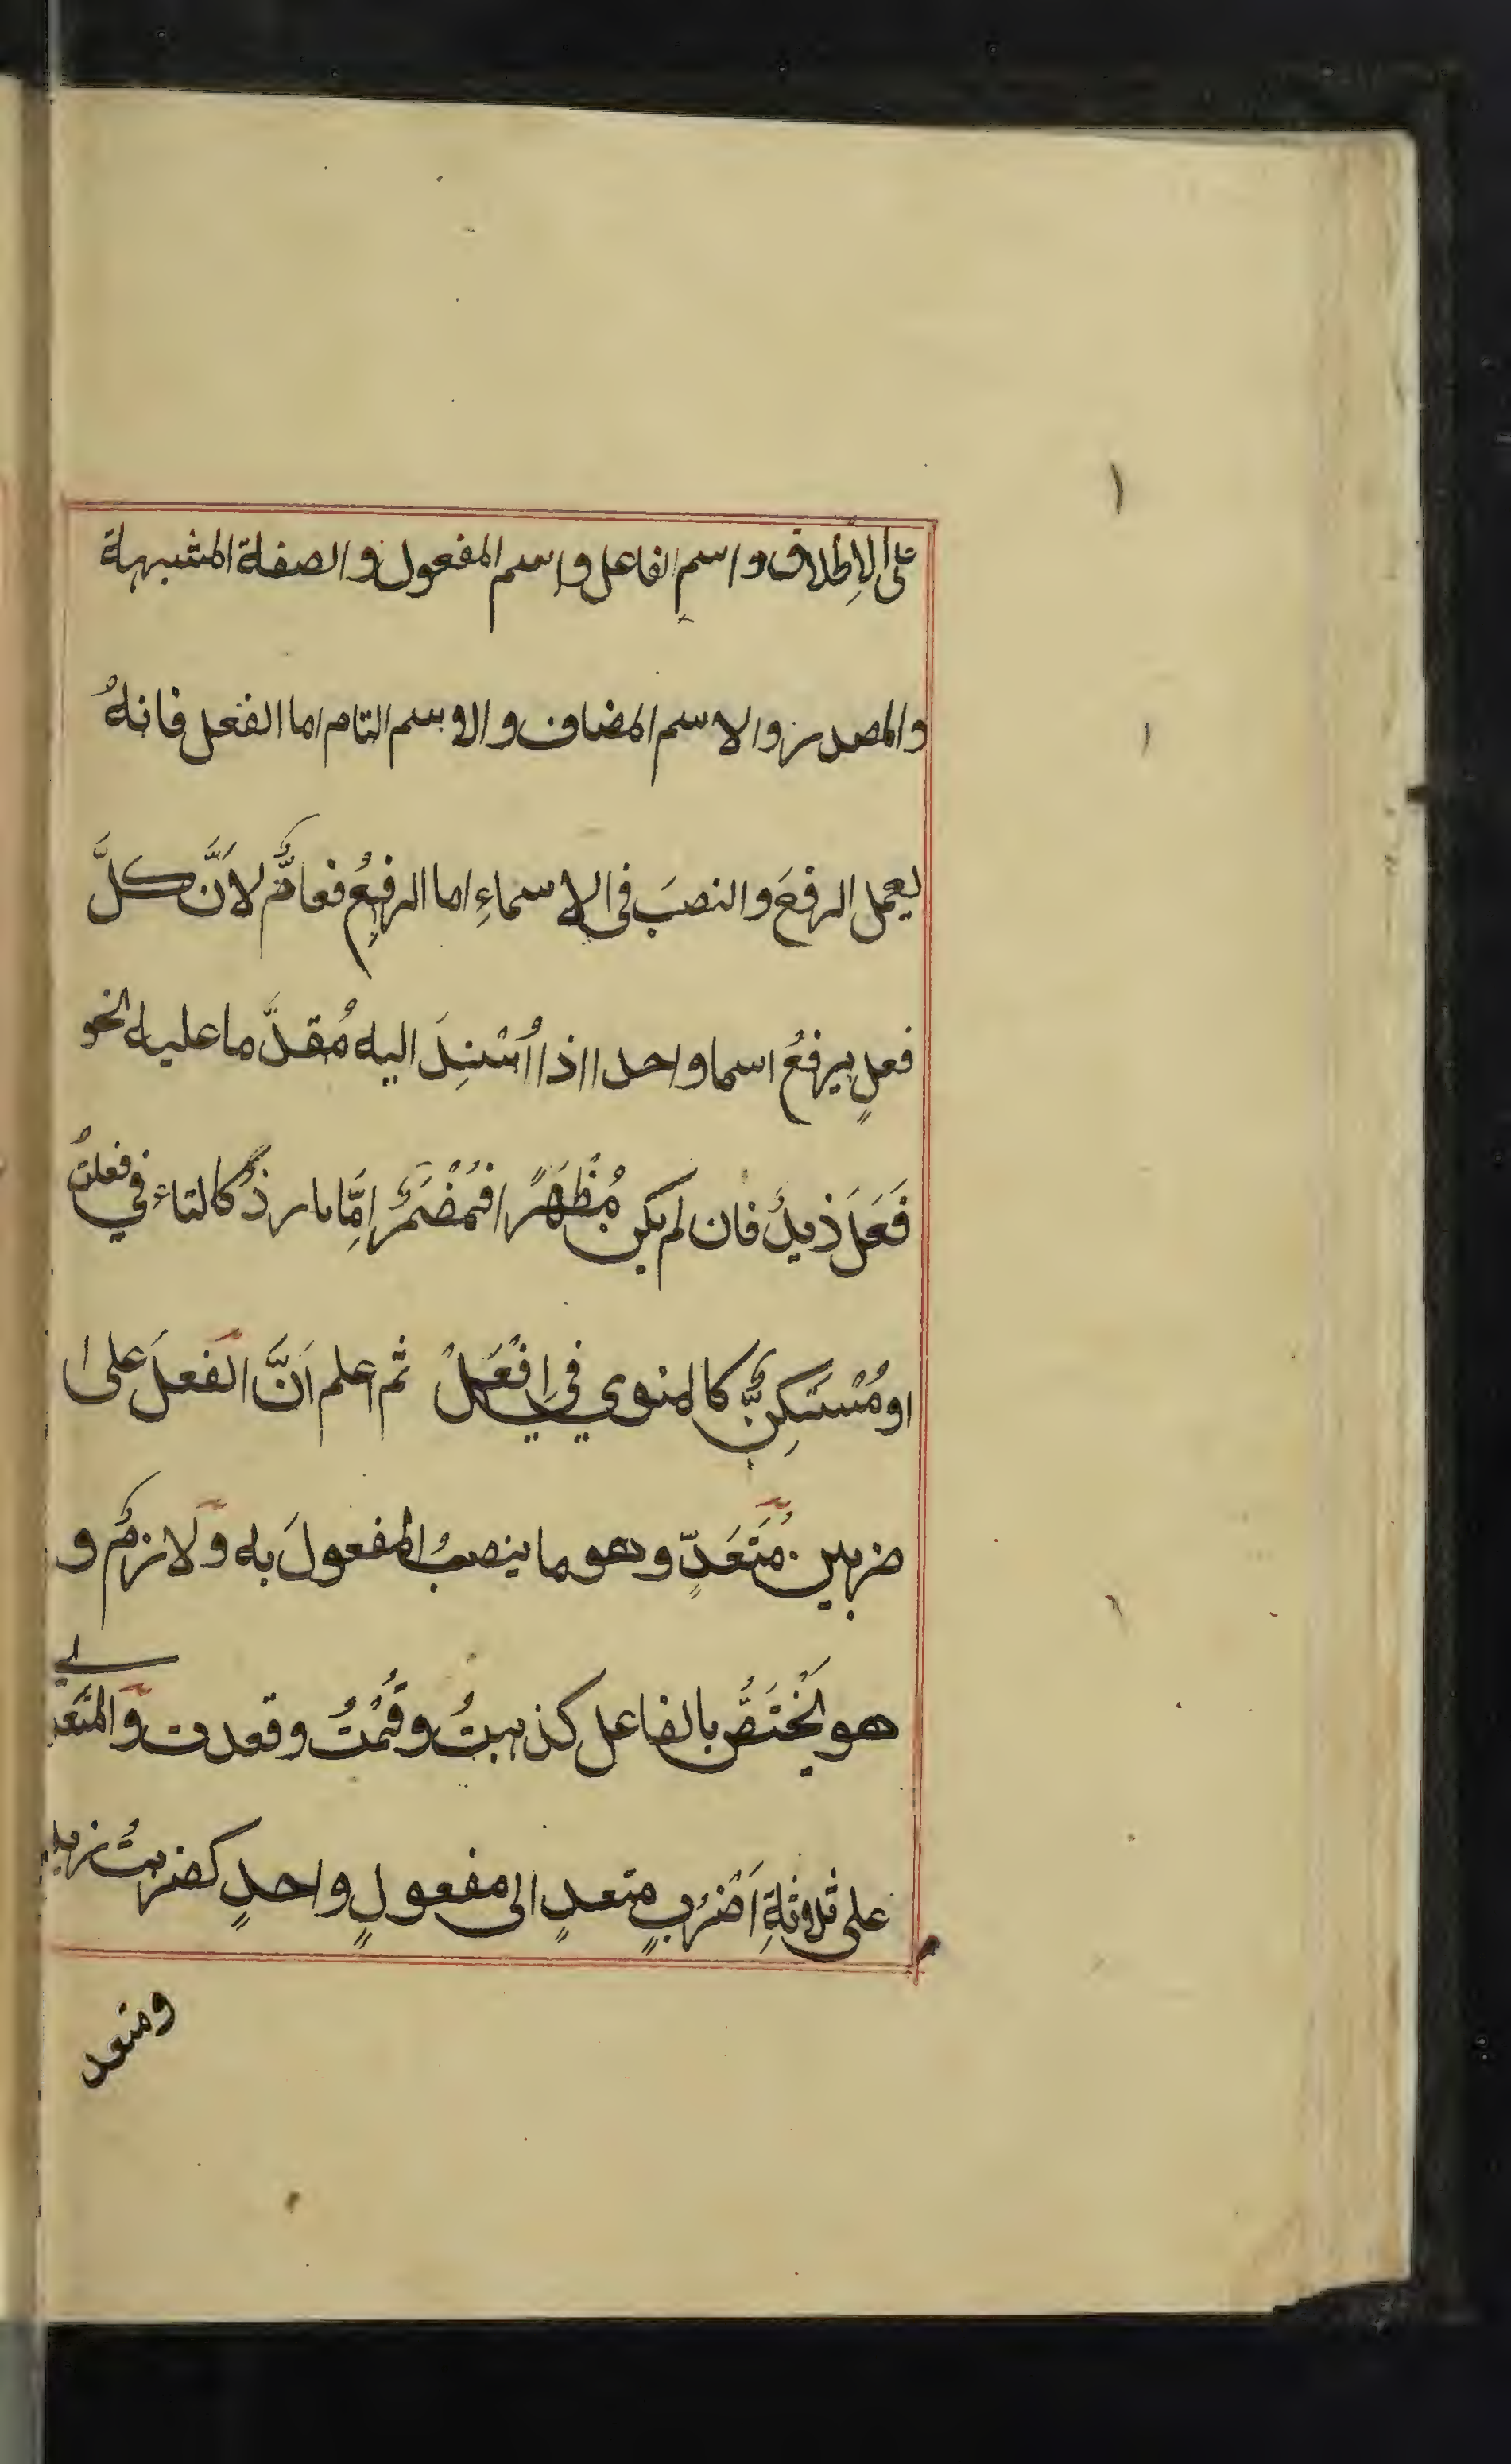 على الاِطلاق واسمِ الفاعل واسم المفعول والصفة المشبهة
والمصدر والاسم المضاف والاسم التام اما الفعل فانهُ
يعمل الرفعَ والنصبَ في الاسماءِ اما الرفعُ فعامٌّ لاَنَّ كلَّ
فعلٍ يرفعُ اسما واحدا اذا اُسْنِدَ اليه مُقدَّما عليه نحو
فَعَلَ زيدٌ فان لم يكن مُظْهَرًا فمُضْمَرٌ اِمَّا بارزٌ كالتاء في فعلتُ
او مُسْتَكِنٌّ كالمنوي في اِفْعَلْ ثم اعلم اَنَّ الفعلَ على
ضربين مُتَعَدٍّ وهو ما ينصبُ المفعولَ به وَلازمٌ و
هو يَخْتَصُّ بالفاعل كذهبتُ وقُمْتُ وقعدت وَالمتَعدي
على ثلاثةِ اَضْرُبٍ متعدٍ الى مفعولٍ واحدٍ كضربتُ زيدا
ومتعد